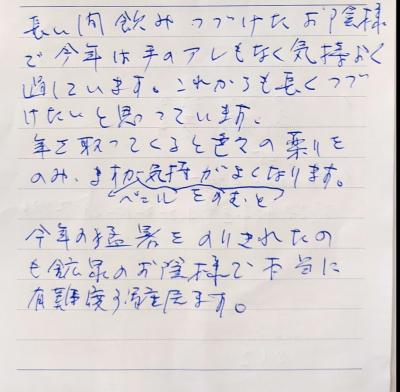 長い間飲みつづけたお陰様
で今年は手のアレもなく気持よく
過しています。これからも長くつづ
けたいと思っています。
年を取ってくると色々の薬りを
のみ、気持がよくなります。
ベニルをのむと
今年の猛暑をのりきれたの
も鉱泉のお陰様で本当に
有難度う御座居ます。